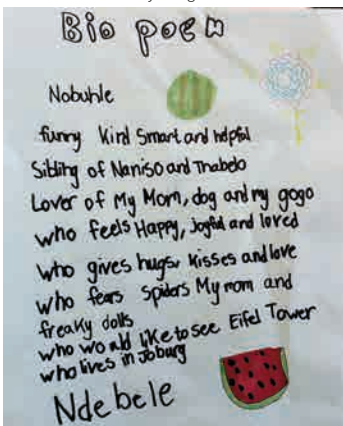 Bio poem
Nobuhle
funny Kind Smart and helpful
Sibling of Naniso and Thabelo
Lover of My Mom, dog and my gogo
who feels Happy, Joyful and loved
who gives hugs, kisses and love
who fears spiders My mom and
freaky dolls
who would like to see Eifel Tower
who lives in Joburg
Ndebele